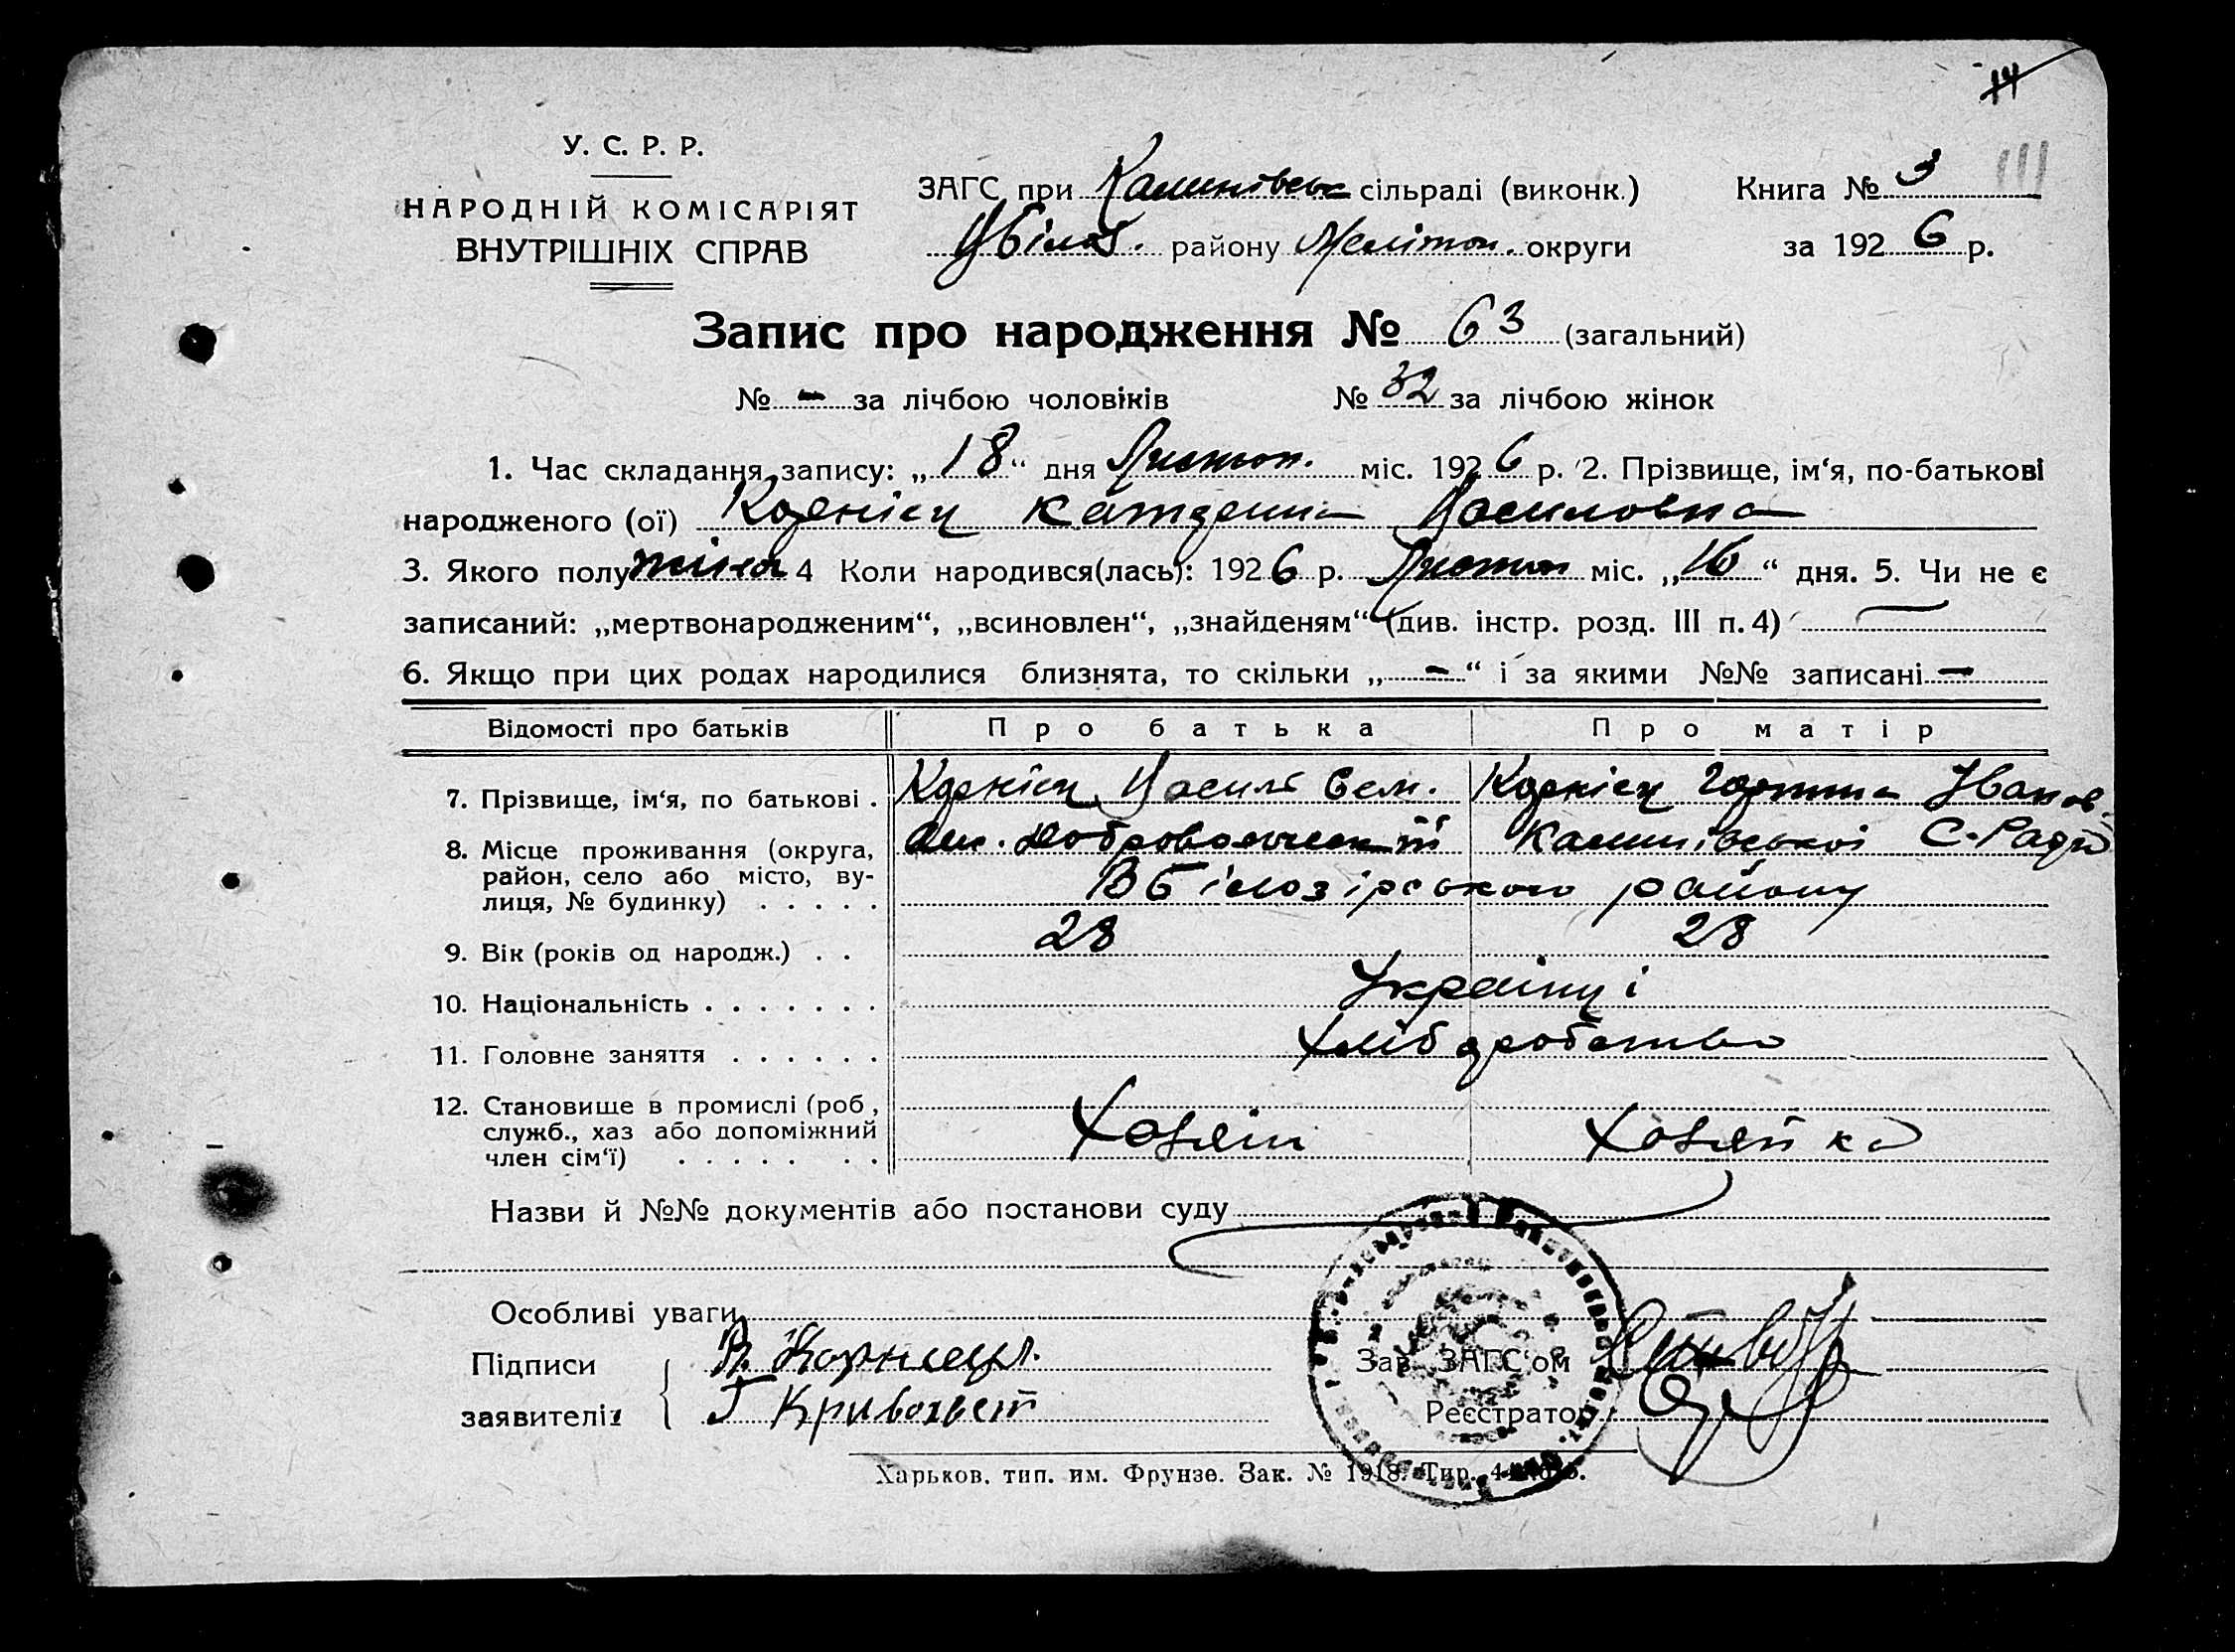 14
111
У. С. Р. Р.
НАРОДНІЙ КОМІСАРІЯТ
ВНУТРІШНІХ СПРАВ
ЗАГС при Калинівськ сільраді (виконк.)
Книга № 3
району Меліտоп. округи
за 192 6 р.
Запис про народження № 63 (загальний)
№ - за лічбою чоловіків № 32 за лічбою жінок
1. Час складання запису: „18“ дня Листоп. міс. 192 6 р. 2. Прізвище, ім‘я, по-батькові
народженого (ої) Корнієц Катерина Василовна
3. Якого полу жіноч 4 Коли народився(лась): 192 6 р. Листоп міс. „16“ дня. 5. Чи не є
записаний: „мертвонародженим“, „всиновлен“, „знайденям“ (див. інстр. розд. III п. 4) —
6. Якщо при цих родах народилися близнята, то скільки „-“ і за якими №№ записані —
Відомості про батьків Про батька Про матір
7. Прізвище, ім‘я, по батькові . Корнієц Василь Сем. Корнієц Іванов.
8. Місце проживання (округа, район, село або місто, вулиця, № будинку) . . . . .
Калинівської С-Ради
ВБілозірського району
9. Вік (років од народж.) . . 28 28
10. Національність . . . . . . . Українці
11. Головне заняття . . . . . . Хліборобство
12. Становище в промислі (роб., служб., хаз або допоміжний член сім‘ї) . . . . . . . Хозяїн Хозяйка
Назви й №№ документів або постанови суду
Особливі уваги
Підписи
заявителів
В. Корнієць.
Г Кривохвст
Зав. ЗАГС‘ом
Реєстратор
Харьков. тип. им. Фрунзе. Зак. № 1918. Тир.